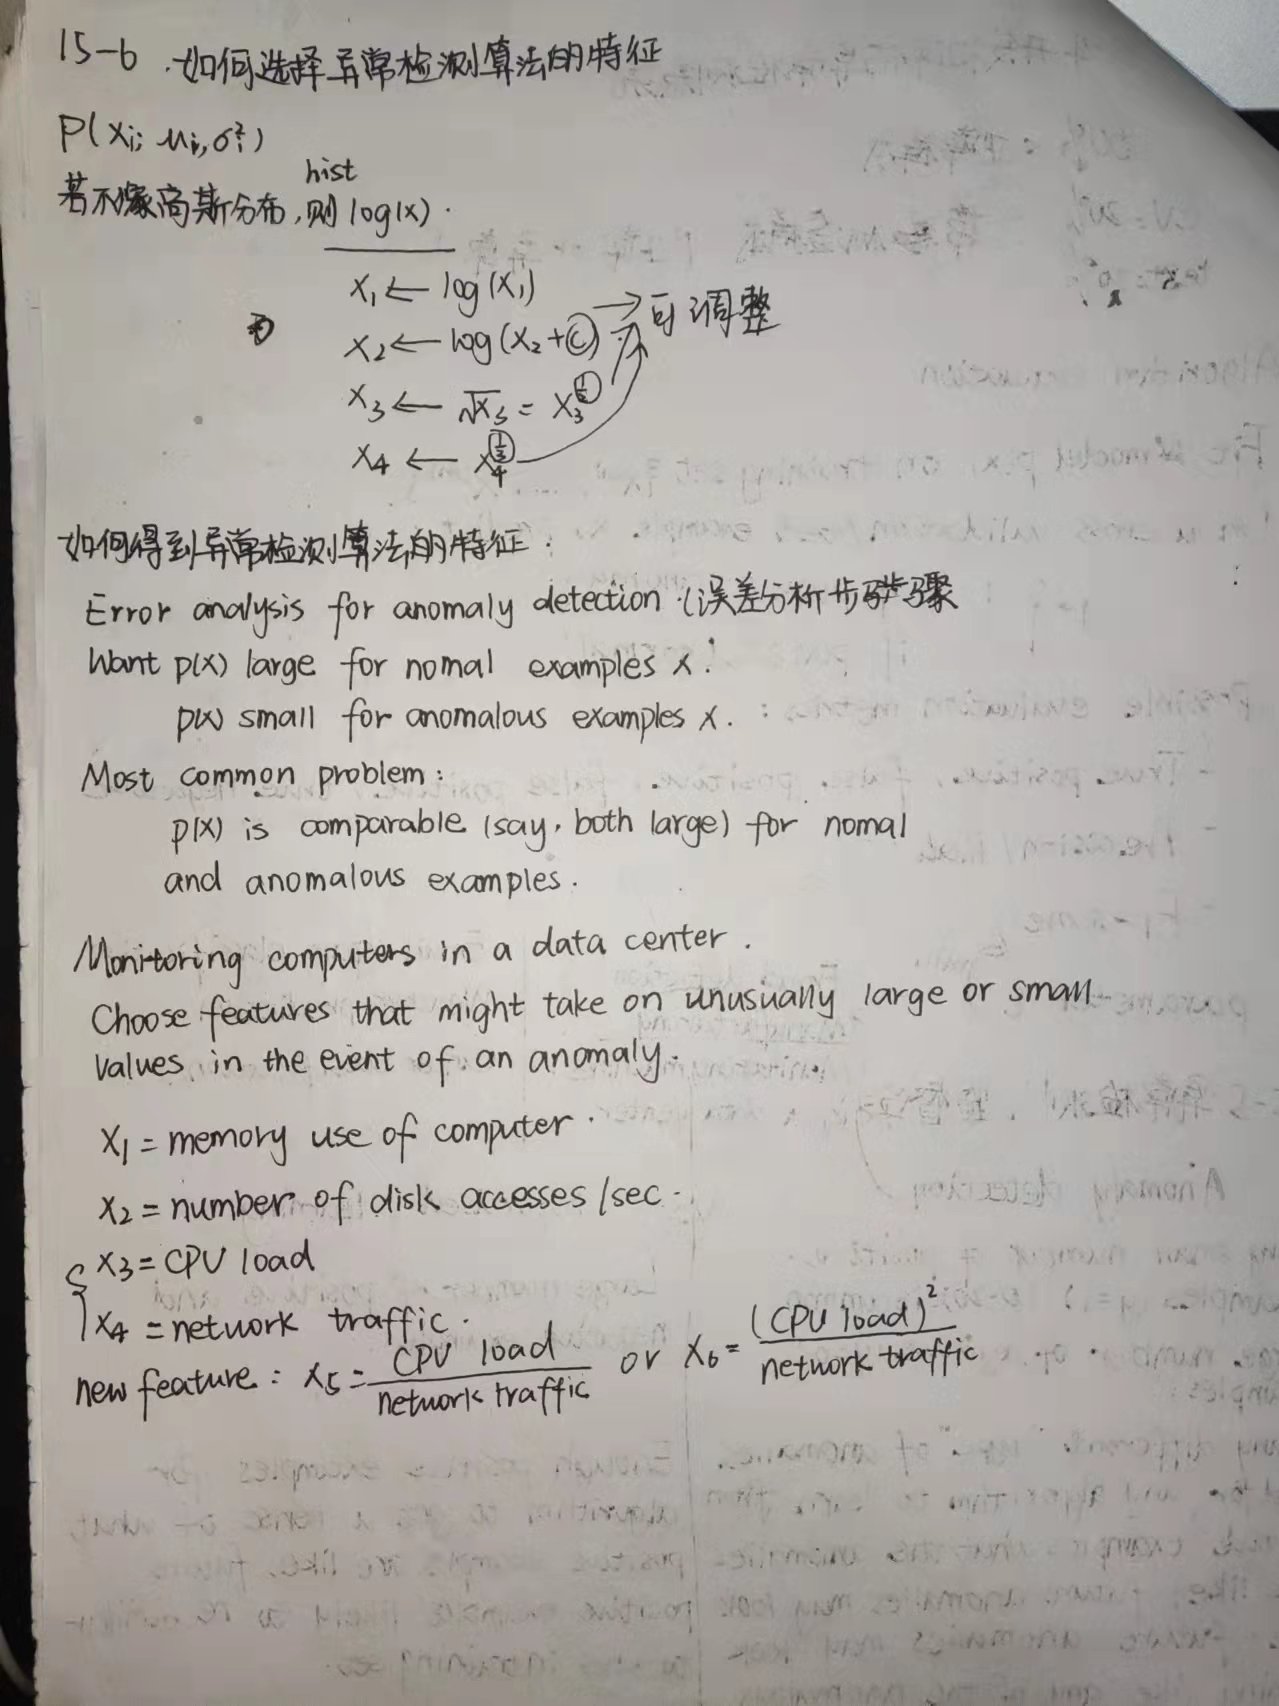 15-6 .如何选择异常检测算法的特征
P(xi; μi,σi²)
hist
若不像高斯分布,则 log(x).
x₁ ← log(x₁)
x₂ ← log(x₂+c) → 可调整
x₃ ← √x₃ = x₃^½
x₄ ← x₄^⅓
如何得到异常检测算法的特征:
Error analysis for anomaly detection (误差分析步骤
Want p(x) large for nomal examples x.
p(x) small for anomalous examples x.
Most common problem:
p(x) is comparable (say, both large) for nomal
and anomalous examples.
Monitoring computers in a data center.
Choose features that might take on unusually large or small
values in the event of an anomaly.
x₁ = memory use of computer.
x₂ = number of disk accesses/sec.
x₃ = CPU load
x₄ = network traffic.
new feature: x₅ = CPU load / network traffic or x₆ = (CPU load)² / network traffic